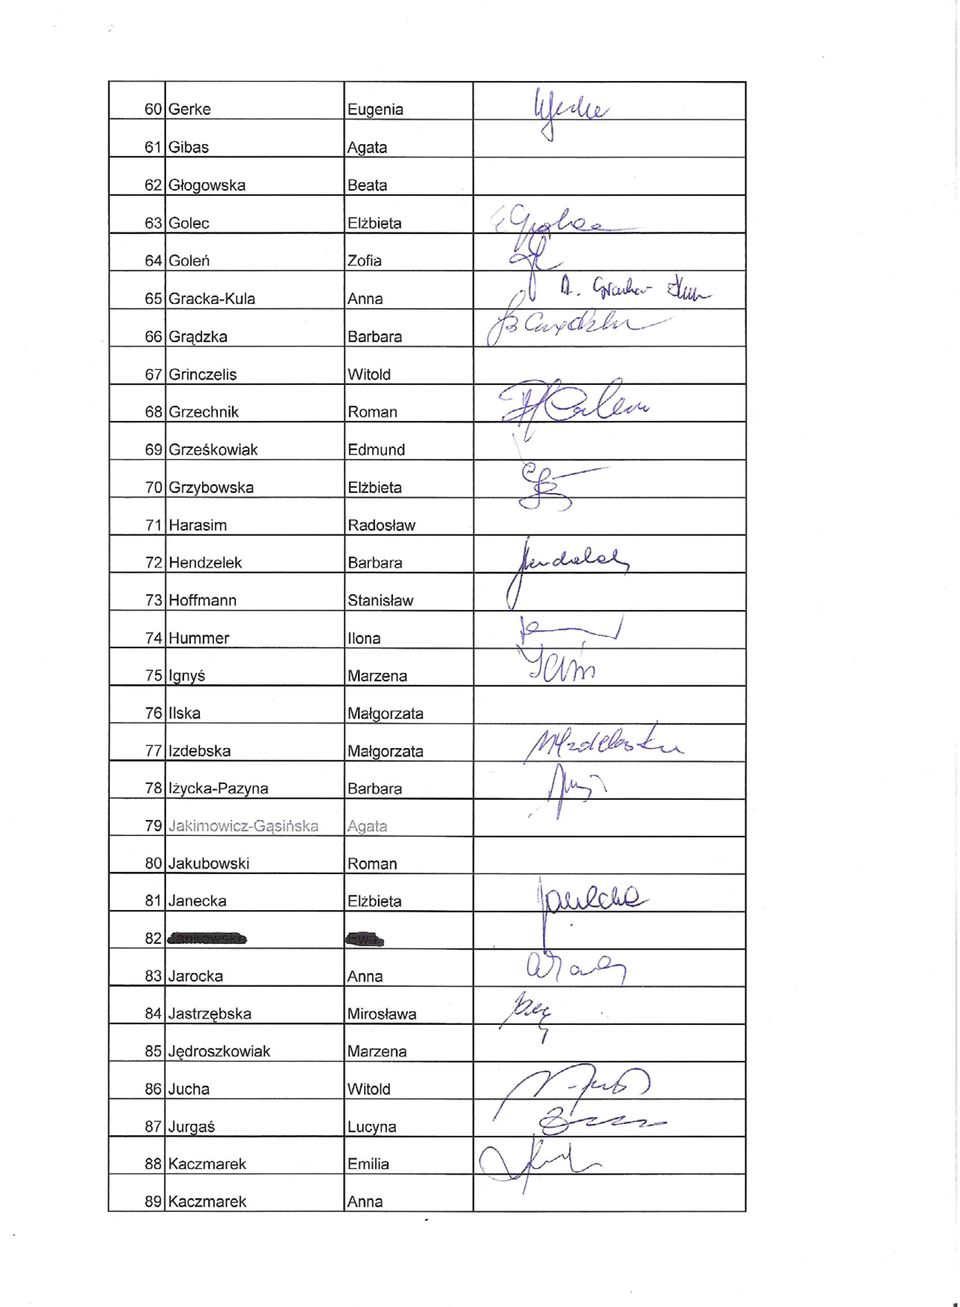 60 Gerke Eugenia
61 Gibas Agata
62 Głogowska Beata
63 Golec Elżbieta
64 Goleń Zofia
65 Gracka-Kula Anna
66 Grądzka Barbara
67 Grinczelis Witold
68 Grzechnik Roman
69 Grześkowiak Edmund
70 Grzybowska Elżbieta
71 Harasim Radosław
72 Hendzelek Barbara
73 Hoffmann Stanisław
74 Hummer Ilona
75 Ignyś Marzena
76 Ilska Małgorzata
77 Izdebska Małgorzata
78 Iżycka-Pazyna Barbara
79 Jakimowicz-Gąsińska Agata
80 Jakubowski Roman
81 Janecka Elżbieta
82
83 Jarocka Anna
84 Jastrzębska Mirosława
85 Jędroszkowiak Marzena
86 Jucha Witold
87 Jurgaś Lucyna
88 Kaczmarek Emilia
89 Kaczmarek Anna